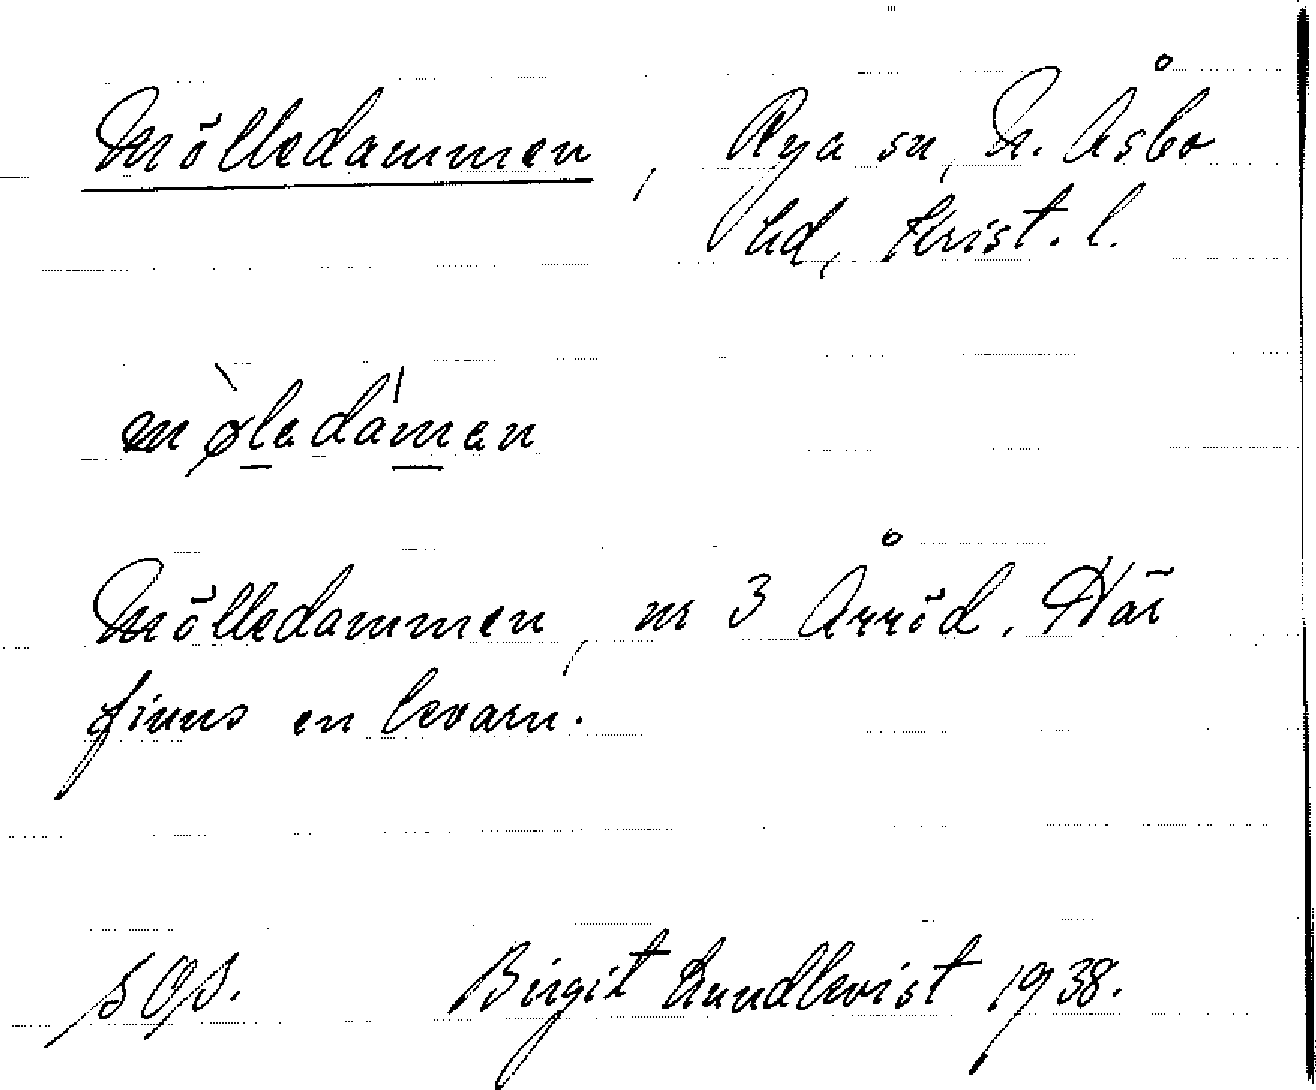 Mölledammen, Rya sn, N. Åsbo
hd, Krist. l.
mø̀ledámen
Mölledammen, nr 3 Årröd. Här
finns en kvarn.
SOS. Birgit Lundkvist 1938.